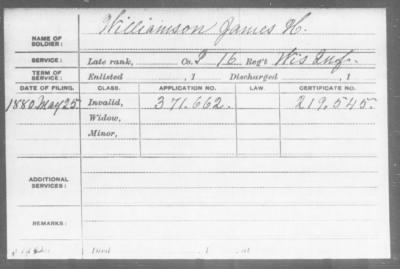 Williamson James H.
NAME OF
SOLDIER:
SERVICE: Late rank, Co. I 16 Reg't Wis Inf.
TERM OF
SERVICE: Enlisted , 1 Discharged , 1
DATE OF FILING. CLASS. APPLICATION NO. LAW. CERTIFICATE NO.
1880 May 25 Invalid, 371.662. 219.545.
Widow,
Minor,
ADDITIONAL
SERVICES:
REMARKS:
Died , 1 , at